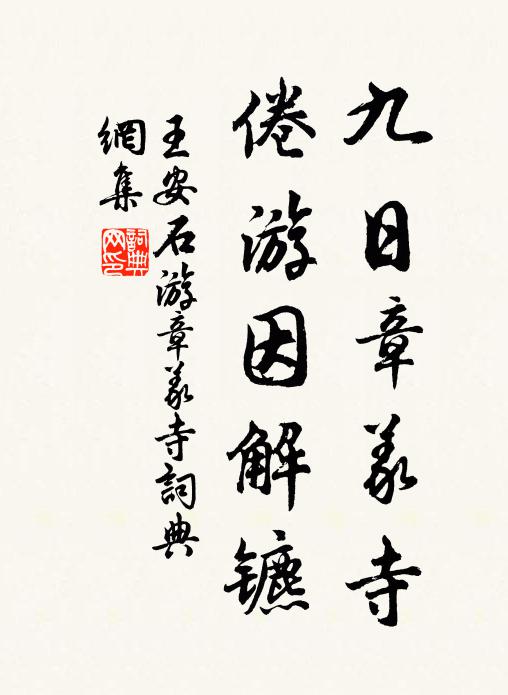 九日章义寺
倦游因解镳
王安石游章义寺詞典
網集
詞典
网印